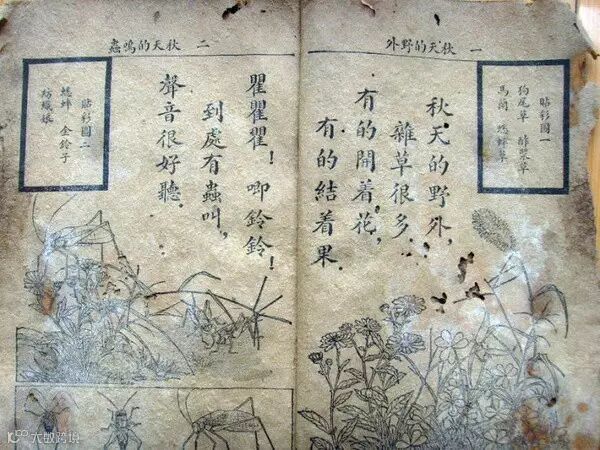 一 秋天的野外
貼彩圖一
狗尾草 酢漿草
馬蘭 蟋蟀草
秋天的野外，
雜草很多．
有的開着花，
有的結着果．
二 秋天的鳴蟲
瞿瞿瞿！唧鈴鈴！
到處有蟲叫，
聲音很好聽．
貼彩圖二
蟋蟀 金鈴子
紡織娘
大数跨境